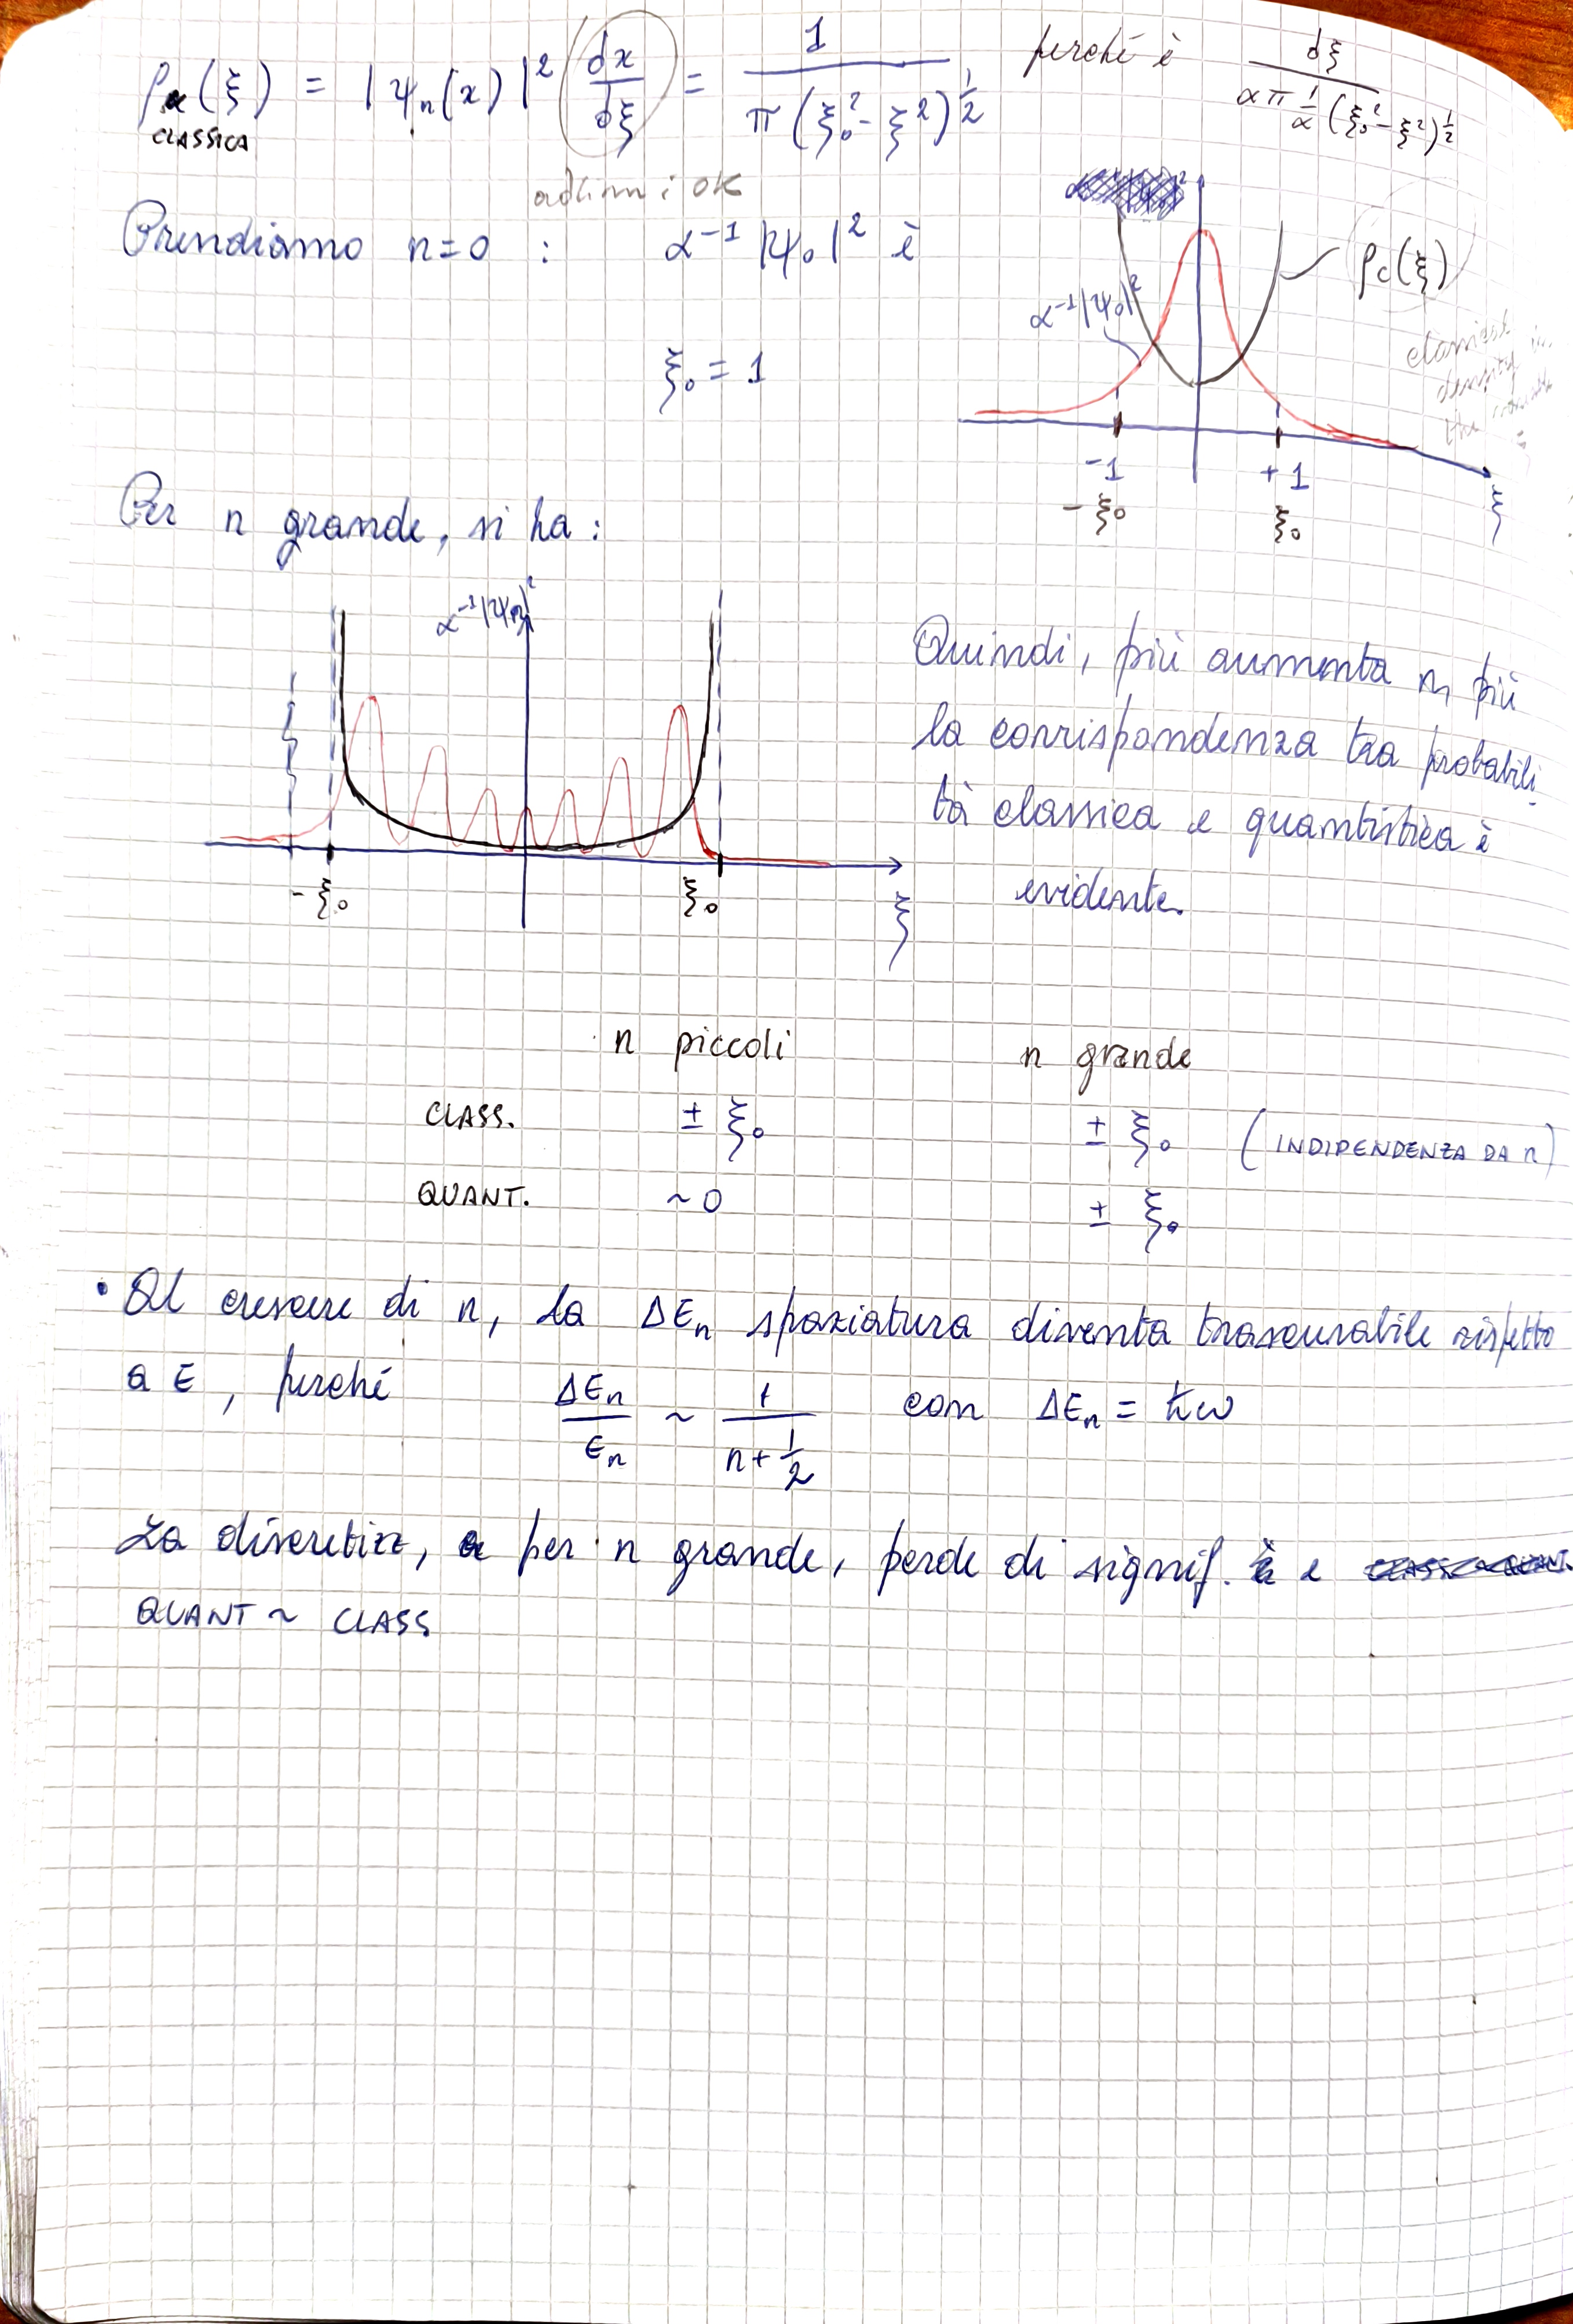 ρ(ξ) = |ψₙ(x)|² (dx/dξ) = 1/(π(ξ₀² - ξ²)^½) perché è dξ/(απ 1/α (ξ₀² - ξ²)^½)
CLASSICA
OK
Prendiamo n=0 : α⁻¹|ψ₀|² è
ξ₀ = 1
ρc(ξ)
α⁻¹|ψ₀|²
classical
density in
the
-1 +1
-ξ₀ ξ₀ ξ
Per n grande, si ha:
α⁻¹|ψₙ|²
-ξ₀ ξ₀ ξ
Quindi, più aumenta n, più
la corrispondenza tra probabili-
tà classica e quantistica è
evidente.
n piccoli n grande
CLASS. ± ξ₀ ± ξ₀ (INDIPENDENZA DA n)
QUANT. ~ 0 ± ξ₀
• Al crescere di n, la ΔEₙ spaziatura diventa trascurabile rispetto
a E, perché ΔEₙ/Eₙ ~ 1/(n+½) con ΔEₙ = ħω
La discretizz, per n grande, perde di signif. e
QUANT ~ CLASS